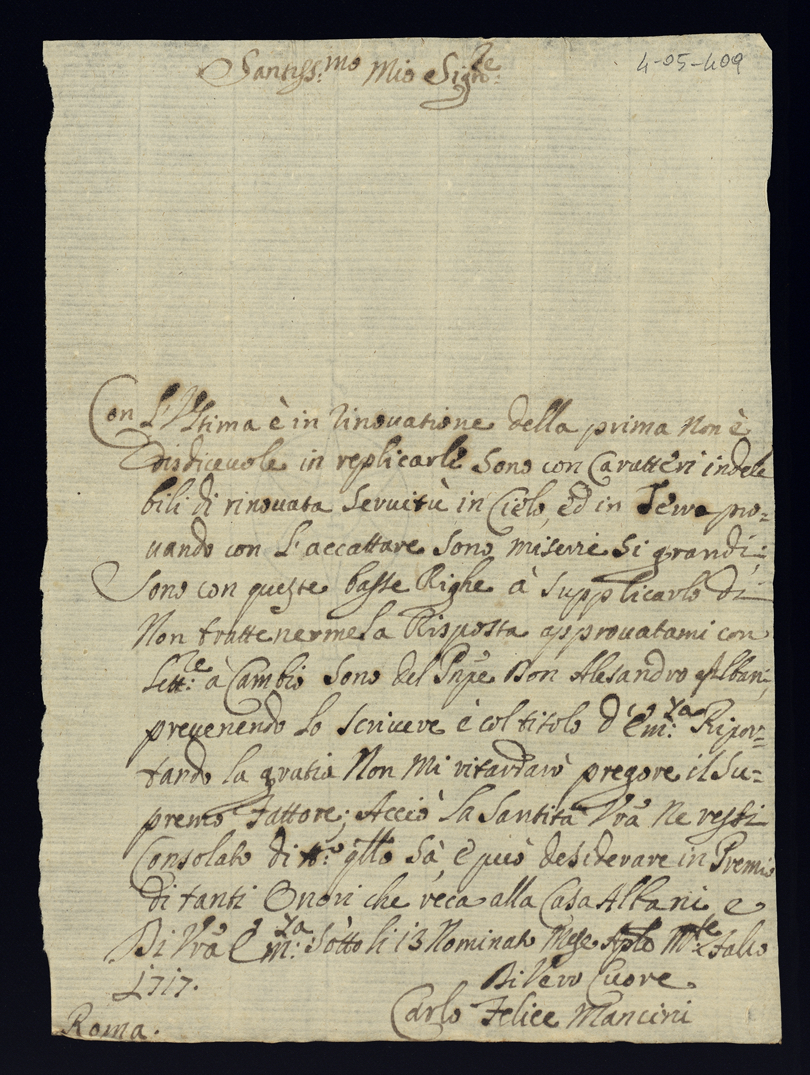 4-05-409
Santiss:mo Mio Sigre:
Con L'Ultima è in rinovatione della prima Non è
Disdicevole in replicarle sono con Caratteri indele
bili di rinovata Servitù in Cielo, ed in Terra pro-
vando con L'accattare sono miserie si grandi;
Sono con queste basse Righe à supplicarlo di
Non trattenermela Risposta approvatami con
Lettre: à Cambio sono del Pnpe Don Alesandro Albani,
prevenendo lo scrivere è col titolo d'Em:za Ripor-
tando la gratia Non Mi ritardarò pregare il Su-
premo Fattore; Acciò la Santità Vrã Ne resti
Consolato di qllo sà è può desiderare in Premio
di tanti Onori che reca alla Casa Albani e
Di Vrã Em:za sotto li 13 Nominato Mese
1717.
Di Vero Cuore
Carlo Felice Mancini
Roma.